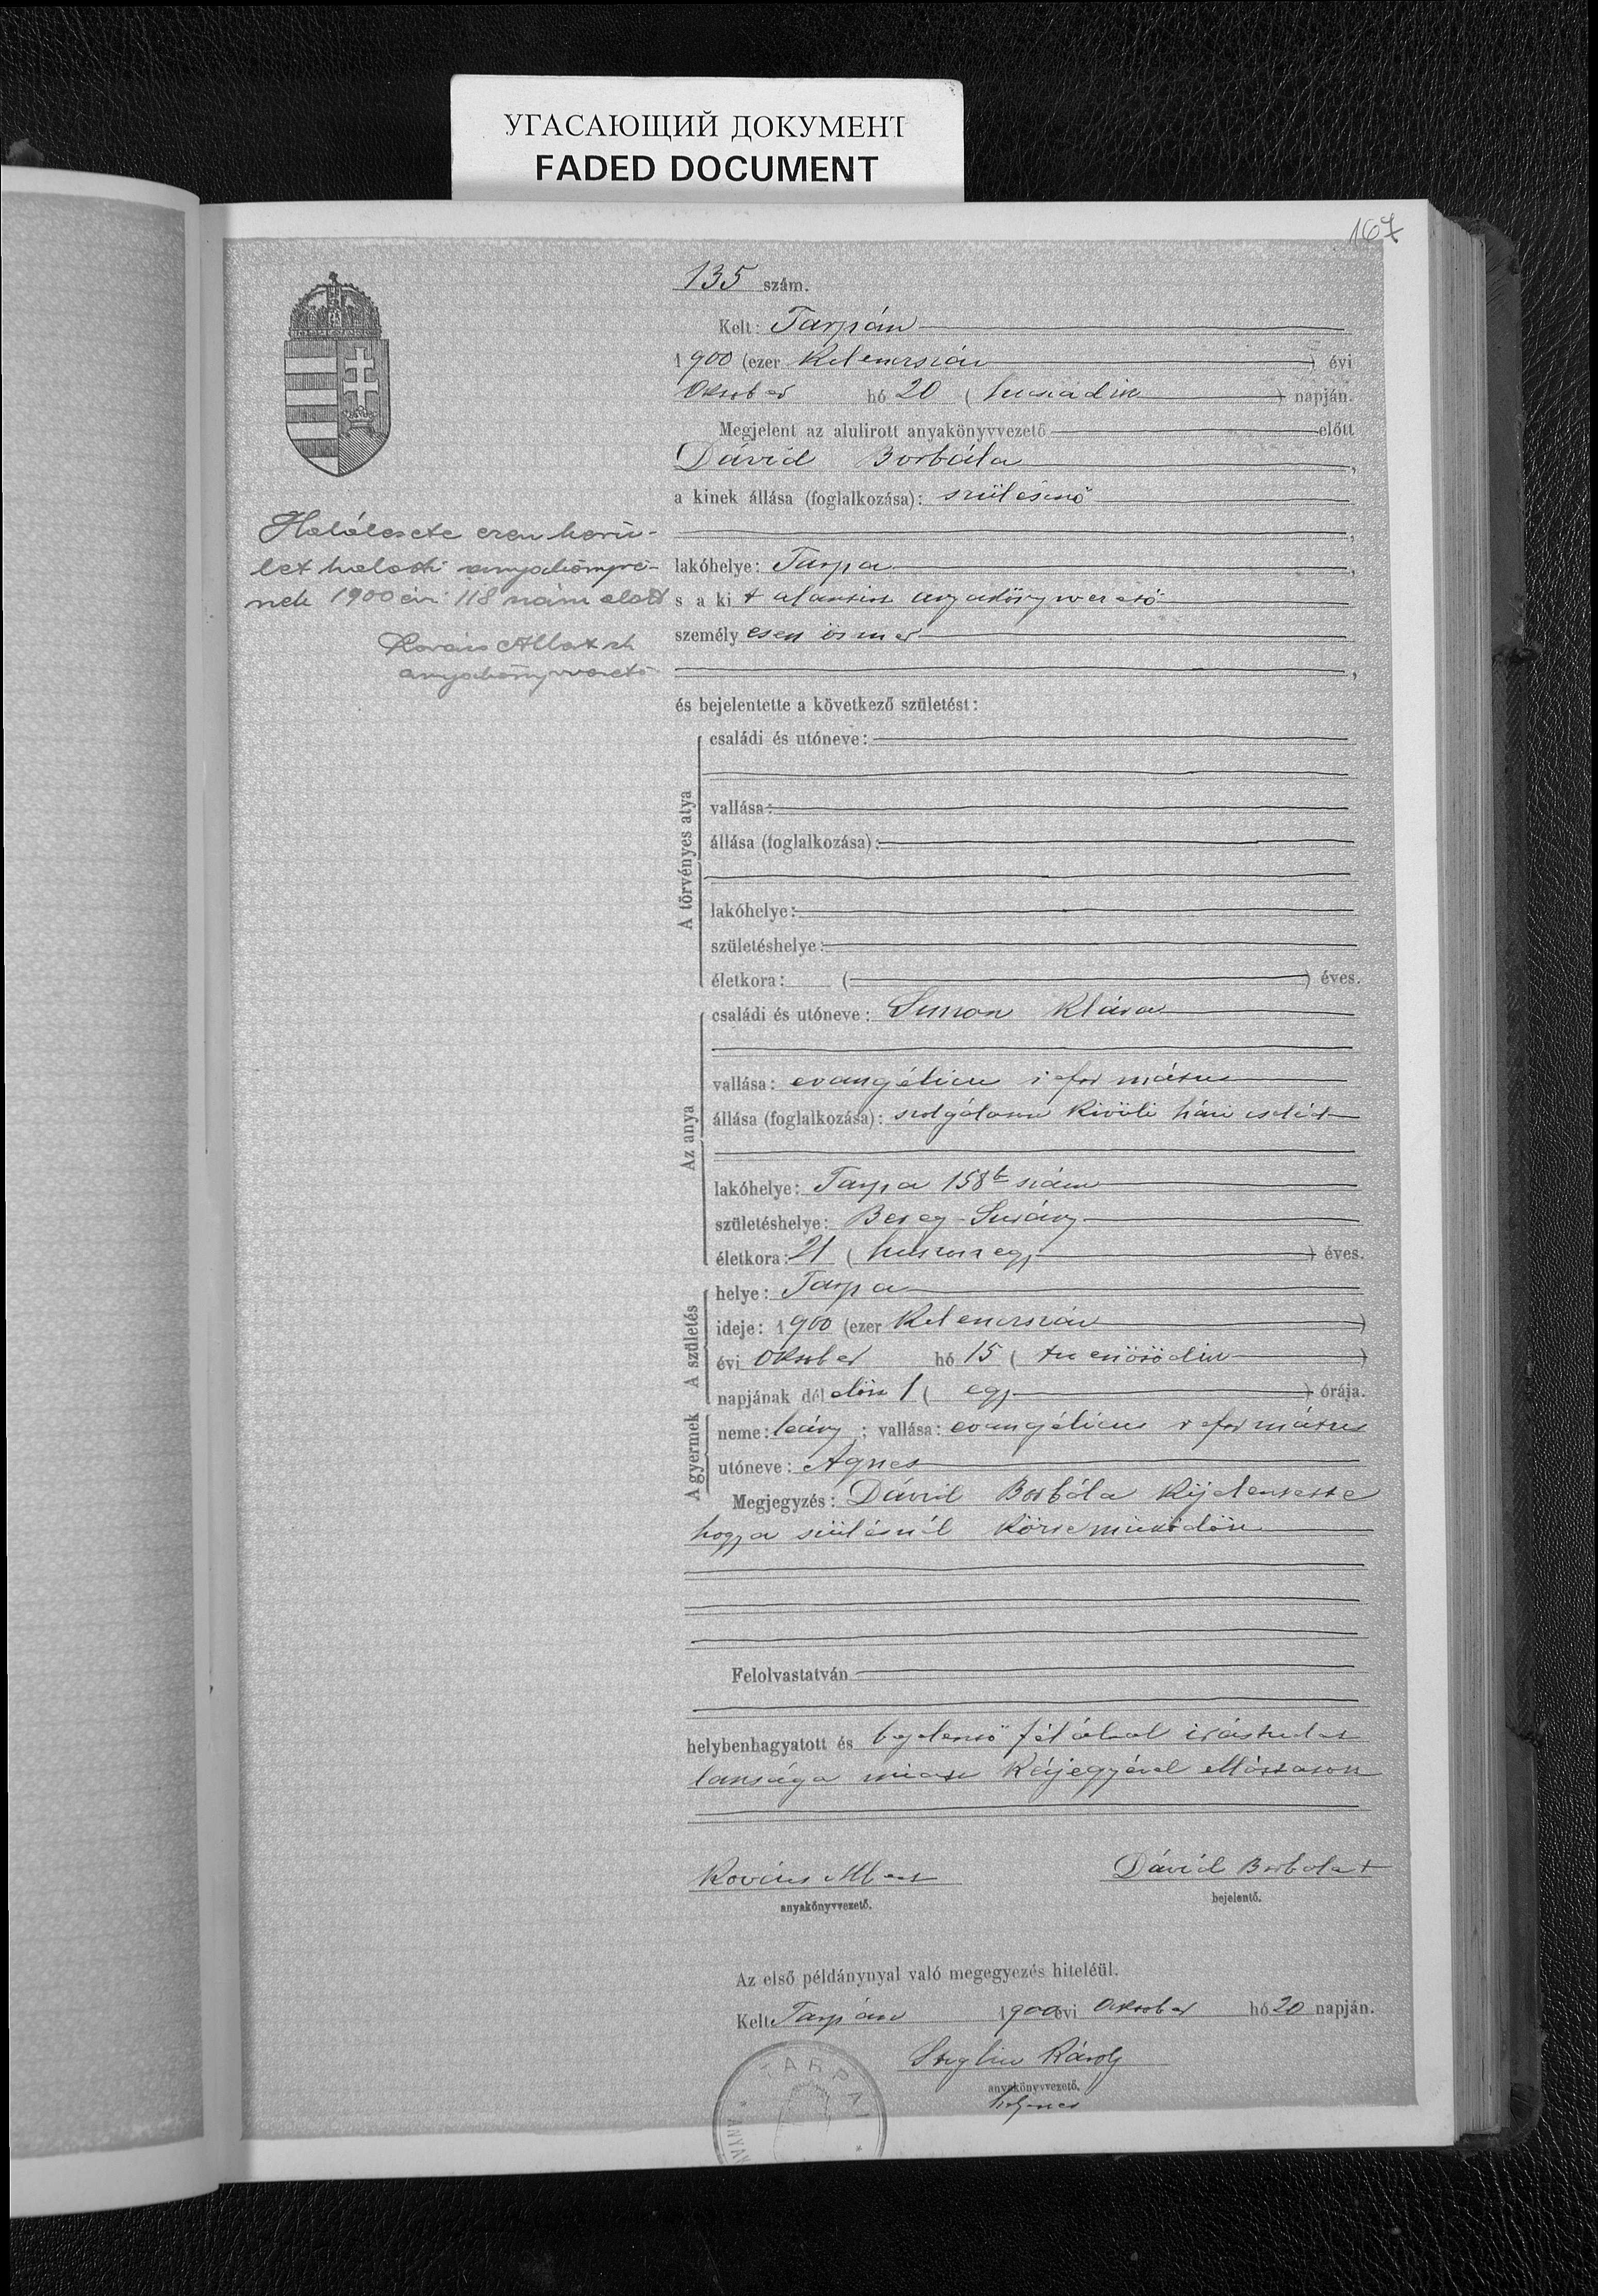 УГАСАЮЩИЙ ДОКУМЕНТ
FADED DOCUMENT
167
135 szám.
Kelt: Tarpán
1900 (ezer kilenczszáz) évi
Október hó 20 (huszadik) napján.
Megjelent az alulirott anyakönyvvezető előtt
Dávid Borbála,
a kinek állása (foglalkozása): szülésznő
,
lakóhelye: Tarpa,
s a kit alantirt anyakönyvvezető
személyesen ismer
,
és bejelentette a következő születést:
Halálesete ezen kerü-
let halotti anyakönyvé-
nek 1900 évi 118 szám alatt
Kovács Albert
anyakönyvvezető
A törvényes atya
családi és utóneve:
vallása:
állása (foglalkozása):
lakóhelye:
születéshelye:
életkora: ( ) éves.
Az anya
családi és utóneve: Simon Klára
vallása: evangélicu református
állása (foglalkozása): szolgálaton kivüli házi cseléd
lakóhelye: Tarpa 158b szám
születéshelye: Bereg-Surány
életkora: 21 (huszonegy) éves.
A születés
helye: Tarpa
ideje: 1900 (ezer kilenczszáz)
évi Október hó 15 (tizenötödik)
napjának délelőtt 1 (egy) órája.
A gyermek
neme: leány; vallása: evangélicu református
utóneve: Ágnes
Megjegyzés: Dávid Borbála kijelentette
hogy a szülésnél közreműködött
Felolvastatván
helybenhagyatott és bejelentő fél által irástudat
lansága miatt kézjegyével ellátatott
Kovács Albert
anyakönyvvezető.
Dávid Borbála +
bejelentő.
Az első példánynyal való megegyezés hiteléül.
Kelt Tarpán 1900 évi Október hó 20 napján.
Károly
anyakönyvvezető.
helyettes
TARPAI
ANYAK